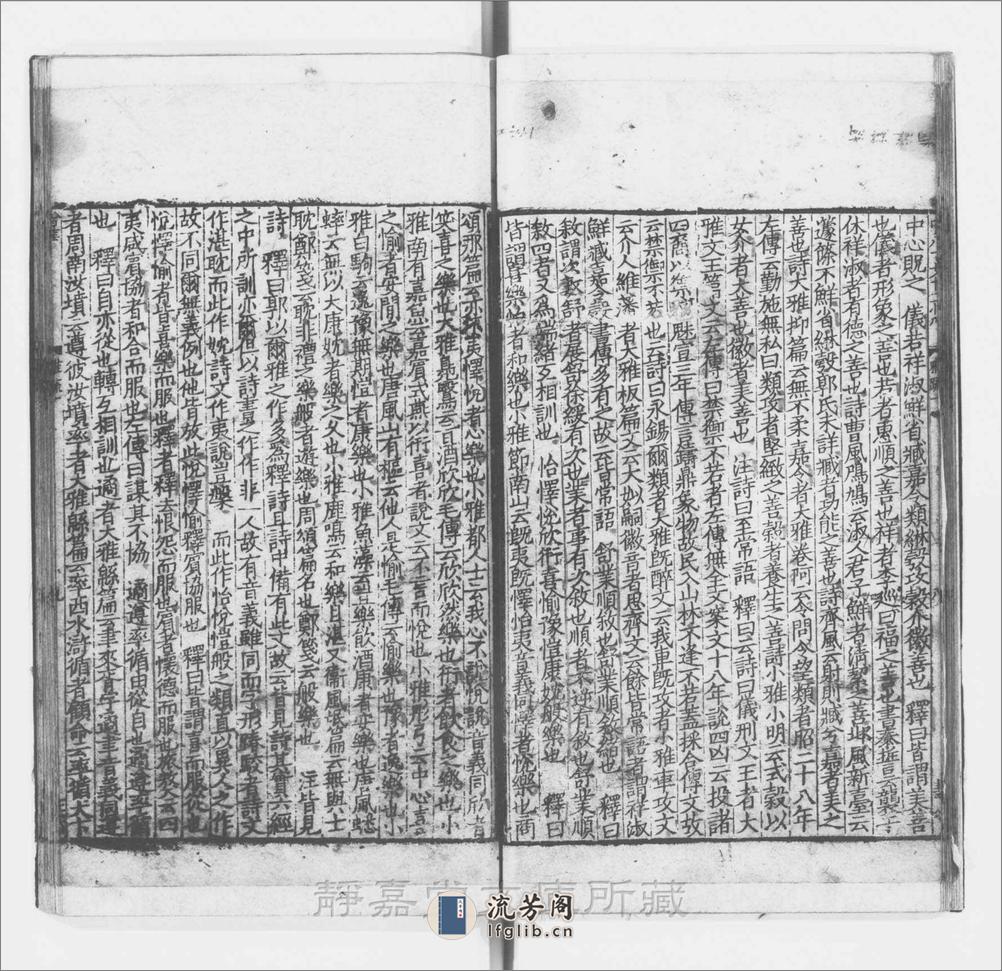 中心貺之　儀若祥淑鮮省臧嘉令類綝彀攻穀介徽善也　釋曰皆謂美善
也儀者形象之善也若者惠順之善也祥者李廵曰福之善也書泰誓云襲于
休祥淑者有德之善也詩曹風鳲鳩云淑人君子鮮者清絜之善邶風新臺云
籧篨不鮮省綝彀郭氏未詳臧者功能之善也詩齊風云射則臧兮嘉者美之
善也詩大雅抑篇云無不柔嘉令者大雅卷阿云令問令望類者昭二十八年
左傳云勤施無私曰類攻者堅緻之善穀者養生之善詩小雅小明云式穀以
女介者大善也徽者美善也　注詩曰至常語　釋曰云詩曰儀刑文王者大
雅文王篇文云左傳曰禁禦不若者左傳無全文案文十八年說四凶云投諸
四裔以禦螭魅宣三年傳言鑄鼎象物故民入山林不逢不若蓋採合傳文故
云禁禦不若也云詩曰永錫爾類者大雅既醉文云我車既攻者小雅車攻文
云介人維藩者大雅板篇文云大姒嗣徽音者思齊文云餘皆常語者謂祥淑
鮮臧嘉令穀書傳多有之故云皆常語　舒業順敘也舒業順敘緒也　釋曰
敘謂次敘舒者展舒徐緩有次也業者事有次敘也順者不逆有敘也舒業順
敘四者又為端緒互相訓也　怡懌悅欣衎喜愉豫愷康妉般樂也　釋曰
皆謂歡樂怡者和樂也小雅節南山云既夷既懌怡夷音義同懌者悅樂也商
頌那篇云亦不夷懌悅者心樂也小雅都人士云我心不說悅說音義同欣者
笑喜之樂也大雅鳧鷖云旨酒欣欣毛傳云欣欣然樂也衎者飲食之樂也小
雅南有嘉魚云嘉賓式燕以衎喜者說文云不言而悅也小雅彤弓云中心喜
之愉者安閒之樂也唐風山有樞云他人是愉毛傳云愉樂也豫者逸樂也小
雅白駒云逸豫無期愷者康樂也小雅魚藻云豈樂飲酒康者安樂也唐風蟋
蟀云無以大康妉者樂之久也小雅鹿鳴云和樂且湛又衛風氓篇云無與士
耽鄭箋云耽非禮之樂般者遊樂也周頌篇名也鄭箋云般樂也　注皆見
詩　釋曰郭以爾雅之作多為釋詩且詩中備有此文故云皆見詩其實六經
之中所訓亦爾但以詩書之作作非一人故有音義雖同而字形踳駮者詩文
作湛耽而此作妉詩文作夷說豈槃而此作怡悅愷般之類直以異人之作
故不同爾無義例也他皆放此悅懌愉釋賓協服也　釋曰皆謂喜而服從也
悅懌愉者皆喜樂而服也釋者釋去恨怨而服也賓者懷德而服也旅獒云四
夷咸賓協者和合而服也左傳曰謀其不協　遹遵率循由從自也遹遵率循
也　釋曰自亦從也轉互相訓也遹者大雅緜篇云聿來胥宇遹聿音義同遵
者周南汝墳云遵彼汝墳率者大雅緜篇云率西水滸循者顧命云率循大卞
靜嘉堂文庫所藏
流芳阁
lfglib.cn